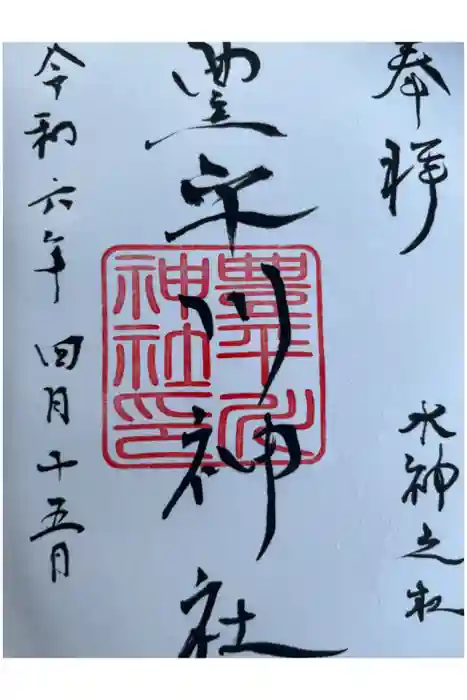 奉拝
水神之杜
豊平川神社
豊平川
神社印
令和六年 四月十五日